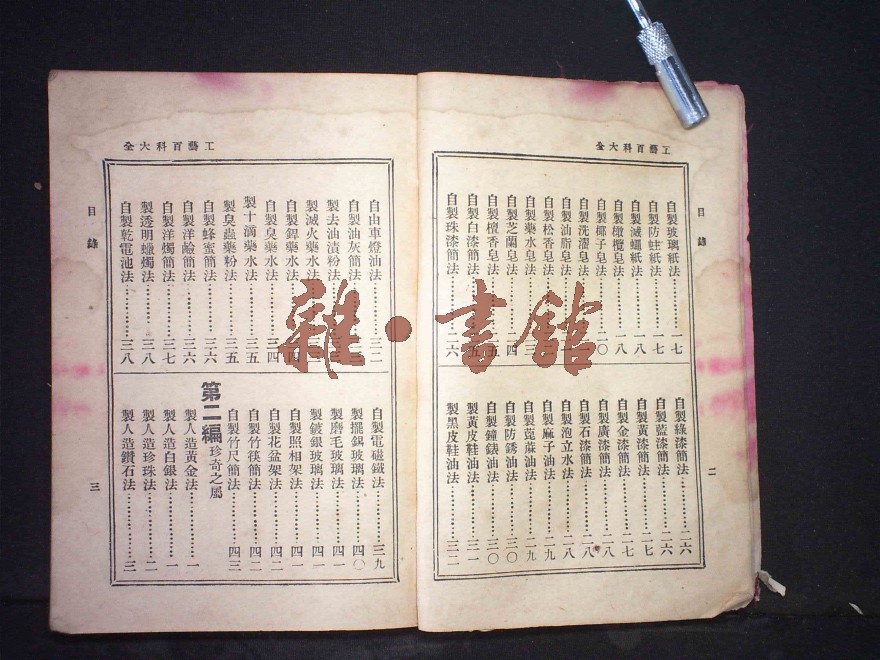 工藝百科大全
目錄
二
自製玻璃紙法……一七
自製防蛀紙法……一七
自製滅蠅紙法……一八
自製橄欖皂法……一八
自製椰子皂法……二〇
自製洗濯皂法
自製油脂皂法
自製松香皂法
自製藥水皂法
自製芝蘭皂法……二四
自製檀香皂法
自製白漆簡法
自製珠漆簡法……二六
自製綠漆簡法……二六
自製藍漆簡法……二六
自製黃漆簡法……二七
自製金漆簡法……二七
自製廣漆簡法……二八
自製石漆簡法……二八
自製泡立水法……二八
自製麻子油法……二九
自製蓖麻油法……二九
自製防銹油法……三〇
自製鐘錶油法……三〇
製黃皮鞋油法……三一
製黑皮鞋油法……三二
工藝百科大全
目錄
三
自由車燈油法……三二
自製油灰簡法
製去油漬粉法
製滅火藥水法
自製銲藥水法
自製臭藥水法……三四
製十滴藥水法……三五
製臭蟲藥粉法……三五
自製蜂蜜簡法……三六
自製洋鹼簡法……三六
自製洋燭簡法……三七
製透明蠟燭法……三八
自製乾電池法……三八
自製電磁鐵法……三九
製擺錫玻璃法……四〇
製磨毛玻璃法……四一
製鍍銀玻璃法……四一
自製照相架法……四一
自製花盆架法……四二
自製竹筷簡法……四二
自製竹尺簡法……四三
第二編 珍奇之屬
製人造黃金法……一
製人造白銀法……一
製人造珍珠法……二
製人造鑽石法……三
雜·書館